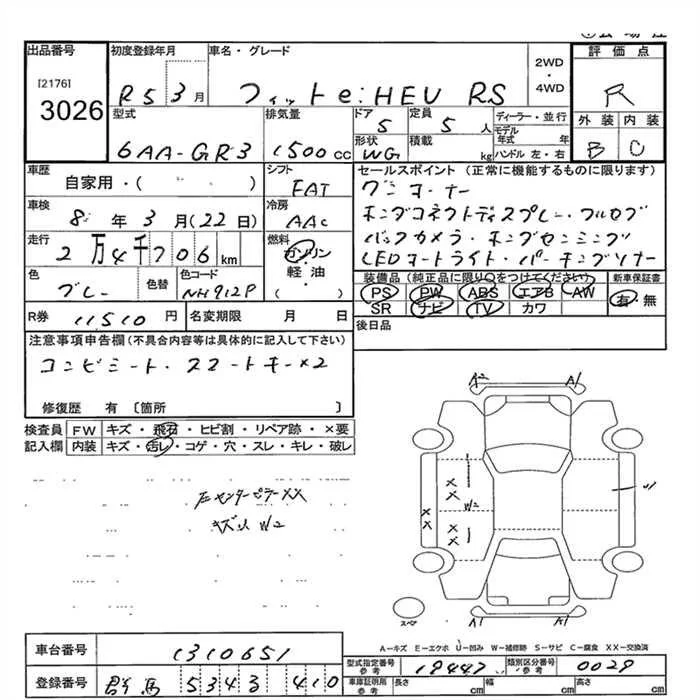 出品番号
[2176]
3026
初度登録年月
R5 3月
車名・グレード
フィットe:HEV RS
2WD
・
4WD
評価点
R
外装 内装
B C
型式
6AA-GR3
排気量
1500cc
ドア
5
形状
WG
定員
5人
積載
kg
ディーラー・並行
モデル年式 年
ハンドル 左・右
車歴
自家用・( )
シフト
FAT
車検
8年3月(22日)
冷房
AAC
走行
2万4千706km
燃料
ガソリン
軽油
( )
色
グレー
色替
色コード
NH912P
R券 11510円
名変期限 月 日
セールスポイント (正常に機能するものに限ります)
ワンオーナー
ホンダコネクトディスプレー・フルセグ
バックカメラ・ホンダセンシング
LEDオートライト・パーキングソナー
装備品 (純正品に限り○をつけてください)
PS PW ABS エアB AW
SR ナビ TV カワ
新車保証書
有・無
後日品
注意事項申告欄(不具合内容等は具体的に記入して下さい)
コンビシート・スマートキー×2
修復歴 有〔箇所 〕
検査員記入欄
FW キズ・飛石・ヒビ割・リペア跡・×要
内装 キズ・汚レ・コゲ・穴・スレ・キレ・破レ
左センターピラーXX
W2
A2 A1
XX
W2
XX
XX
U1
スペア
A1 A1
A-キズ E-エクボ U-凹み W-補修跡 S-サビ C-腐食 XX-交換済
車台番号
1310651
登録番号
群馬 5343 410
型式指定番号
参考
19447
類別区分番号
参考
0029
車庫証明用
参考
長さ cm
幅 cm
高さ cm